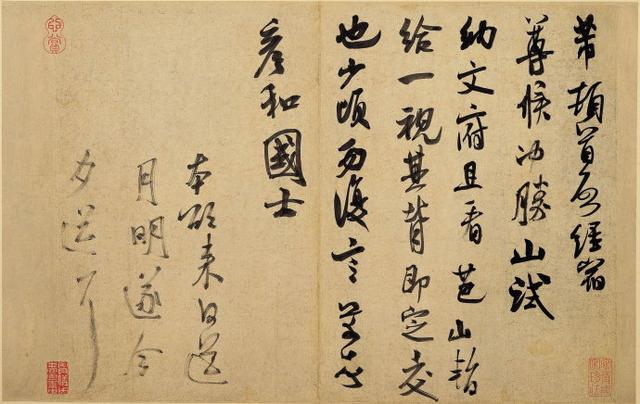 芾頓首启經宿
尊候冲勝山試
納文府且看芭山暫
給一視其背即定交
也少頃勿復言芾頓首
彥和國士
本欲來日送
月明遂今
夕送耳